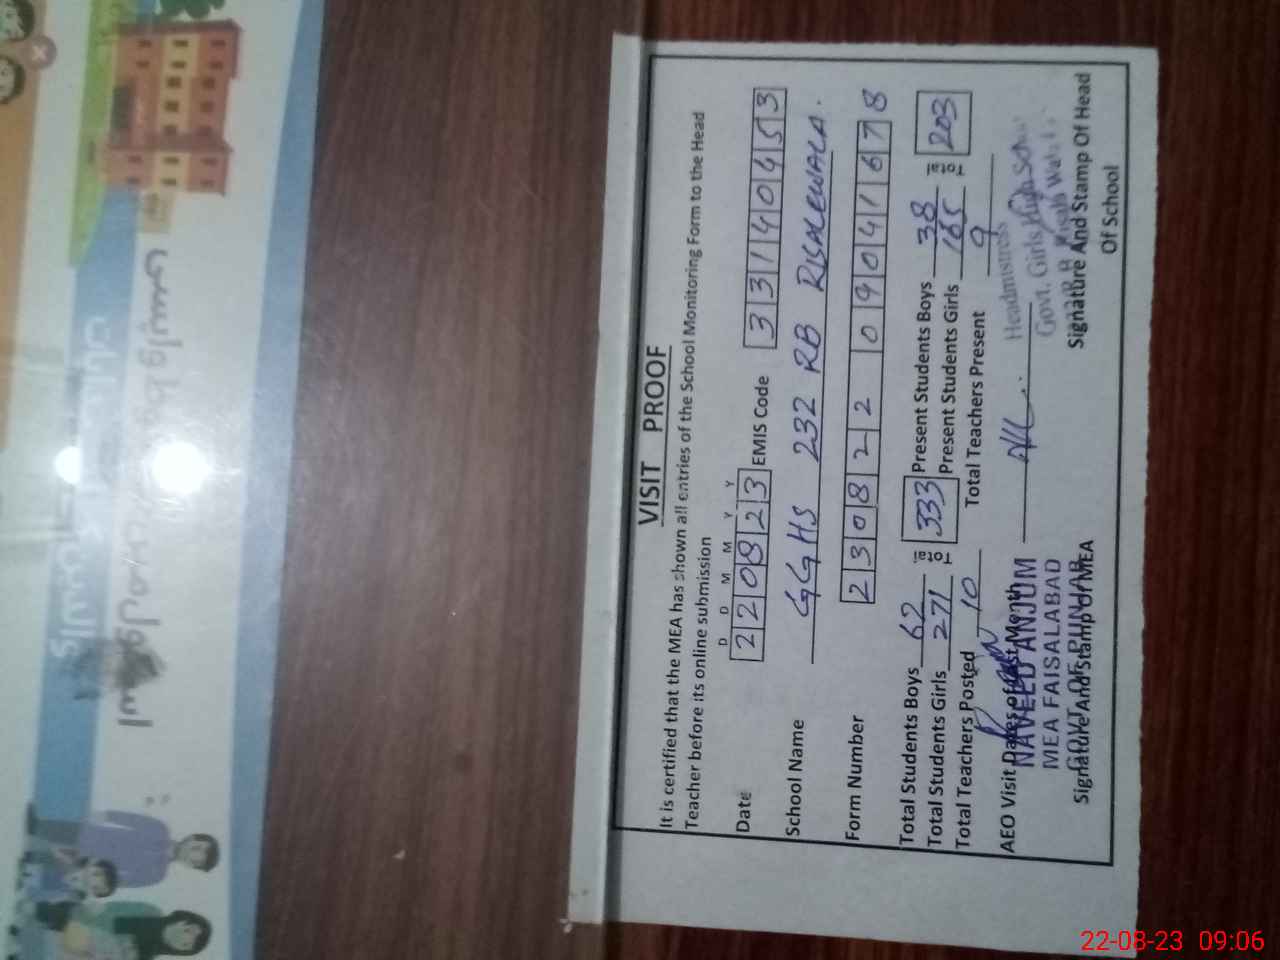 VISIT PROOF
It is certified that the MEA has shown all entries of the School Monitoring Form to the Head
Teacher before its online submission
D D M M Y Y
Date 220823 EMIS Code 33140453
School Name GGHS 232 RB RISALEWALA.
Form Number 23082209041678
Total Students Boys 62 Total 333 Present Students Boys 38 Total 203
Total Students Girls 271 Present Students Girls 165
Total Teachers Posted 10 Total Teachers Present 9
AEO Visit Dates of Last Month
NAVEED ANJUM
MEA FAISALABAD
GOVT. OF PUNJAB
Signature And Stamp of MEA
Headmistress
Govt. Girls High School
Signature And Stamp Of Head
Of School
22-08-23 09:06